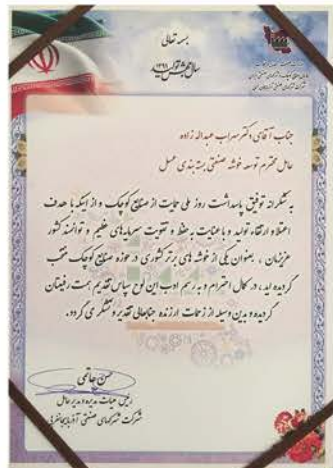 بسمه تعالی
سال ۱۳۹۸ جهش تولید
جناب آقای دکتر سهراب عبداله زاده
عامل محترم توسعه خوشه صنعتی بسته بندی عسل
به شکرانه توفیق پاسداشت روز ملی حمایت از صنایع کوچک و از اینکه با هدف
اعتلا و ارتقاء تولید و با عنایت به حفظ و تقویت سرمایه‌های عظیم و توانمند کشور
عزیزمان ، بعنوان یکی از خوشه های برتر کشوری در حوزه صنایع کوچک منتخب
گردیده اید، در کمال احترام و به رسم ادب این لوح سپاس تقدیم همت رفیعتان
گردیده و بدین وسیله از زحمات ارزنده جنابعالی تقدیر و تشکر می گردد.
رئیس هیات مدیره و مدیر عامل
شرکت شهرکهای صنعتی آذربایجانغربی